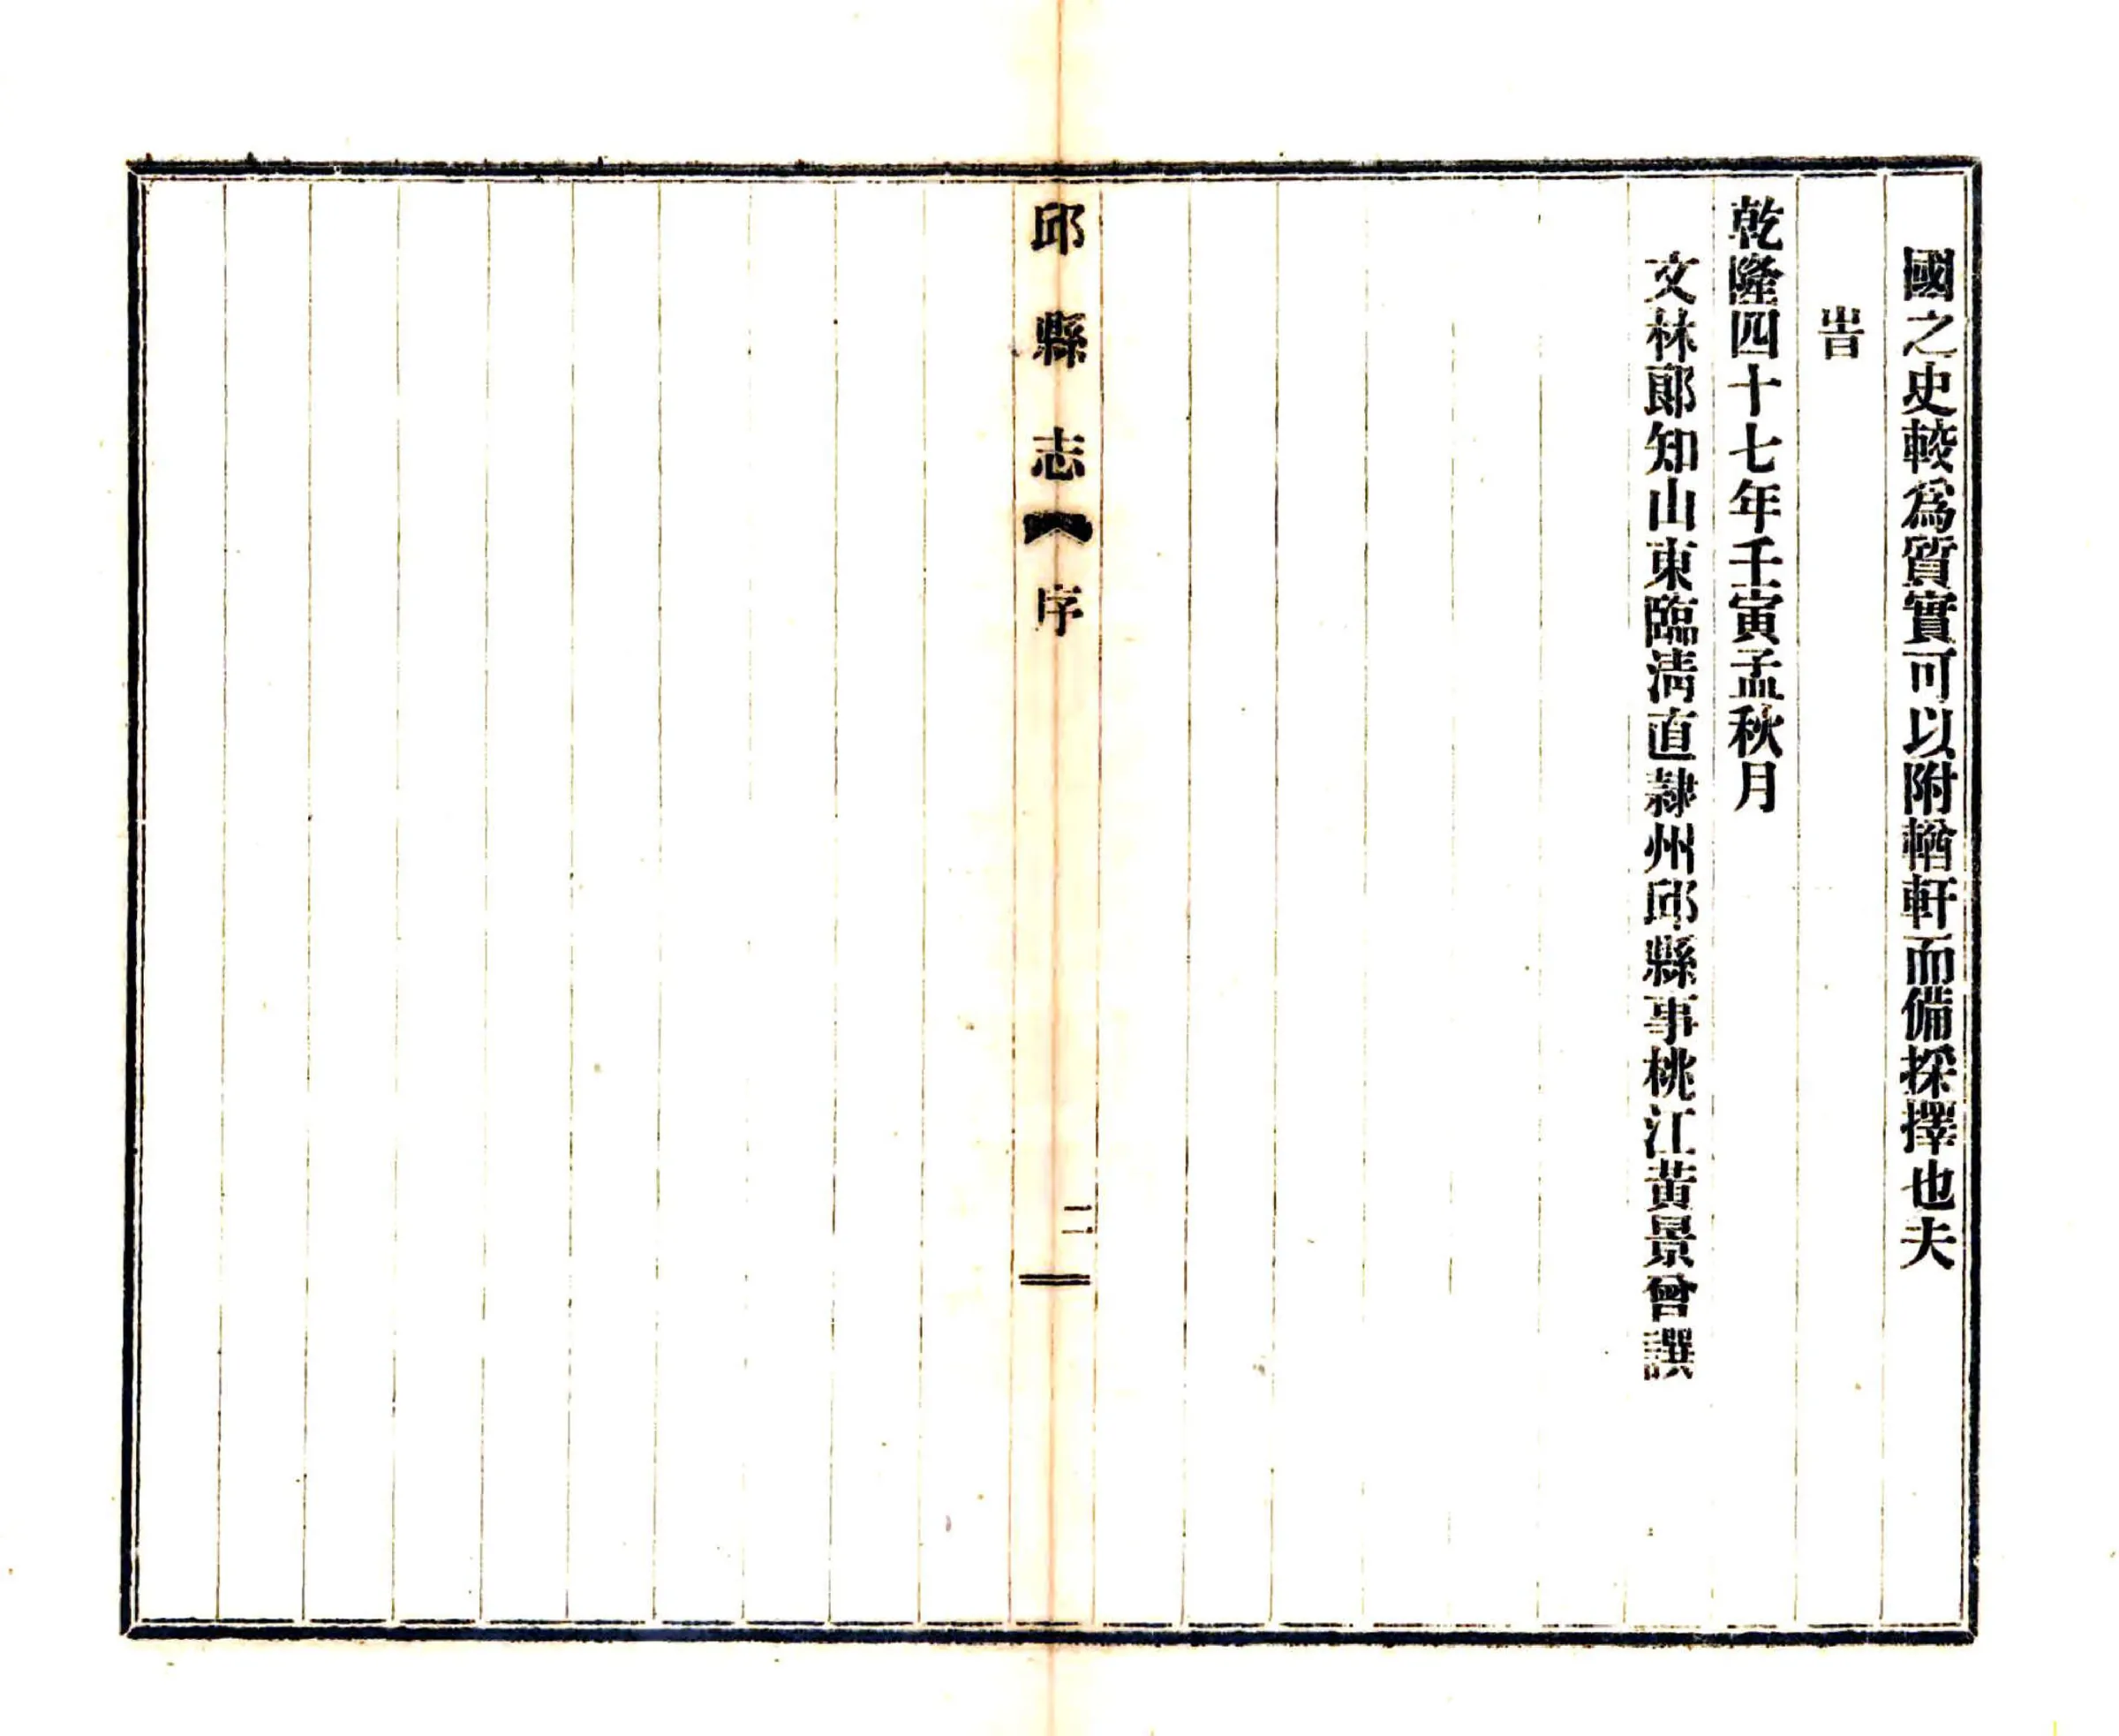 國之史較爲質實可以附輶軒而備採擇也夫
旹
乾隆四十七年壬寅孟秋月
文林郞知山東臨淸直隸州邱縣事桃江黃景曾譔
邱縣志
序
二